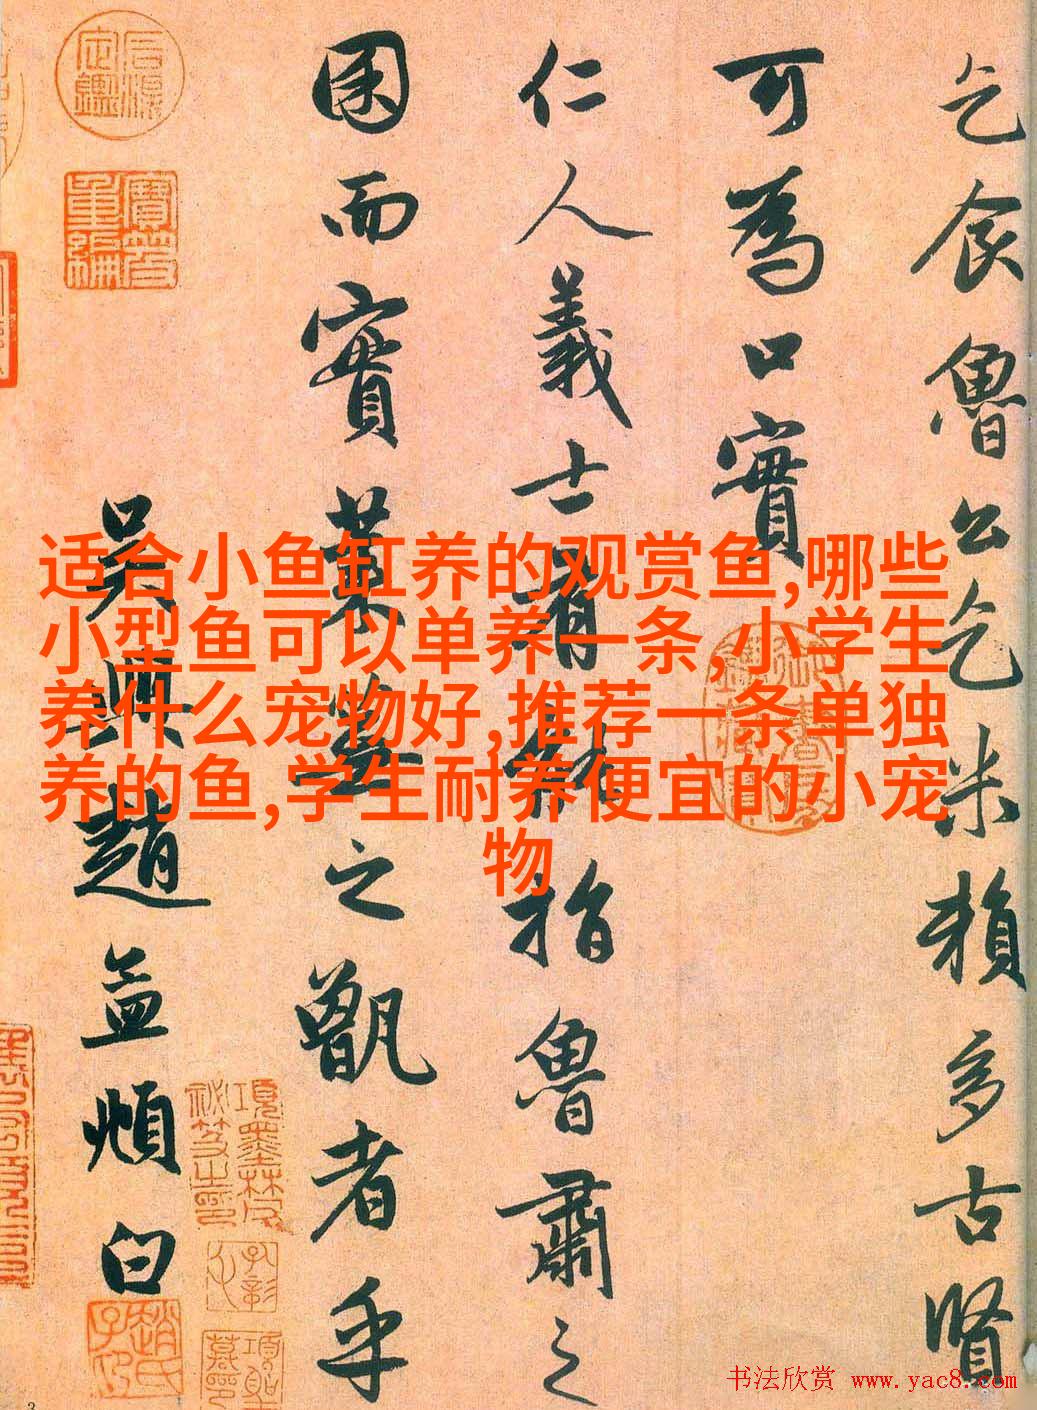 适合小鱼缸养的观赏鱼,哪些
小型鱼可以单养一条,小学生
养什么宠物好,推荐一条单独
养的鱼,学生耐养便宜的小宠
物
乞食魯公乞米賴多古賢
可為口實
仁人義士
指魯肅之
困而實萊蕪之甑者乎
吳興趙孟頫白
书法欣赏 www.yac8.com